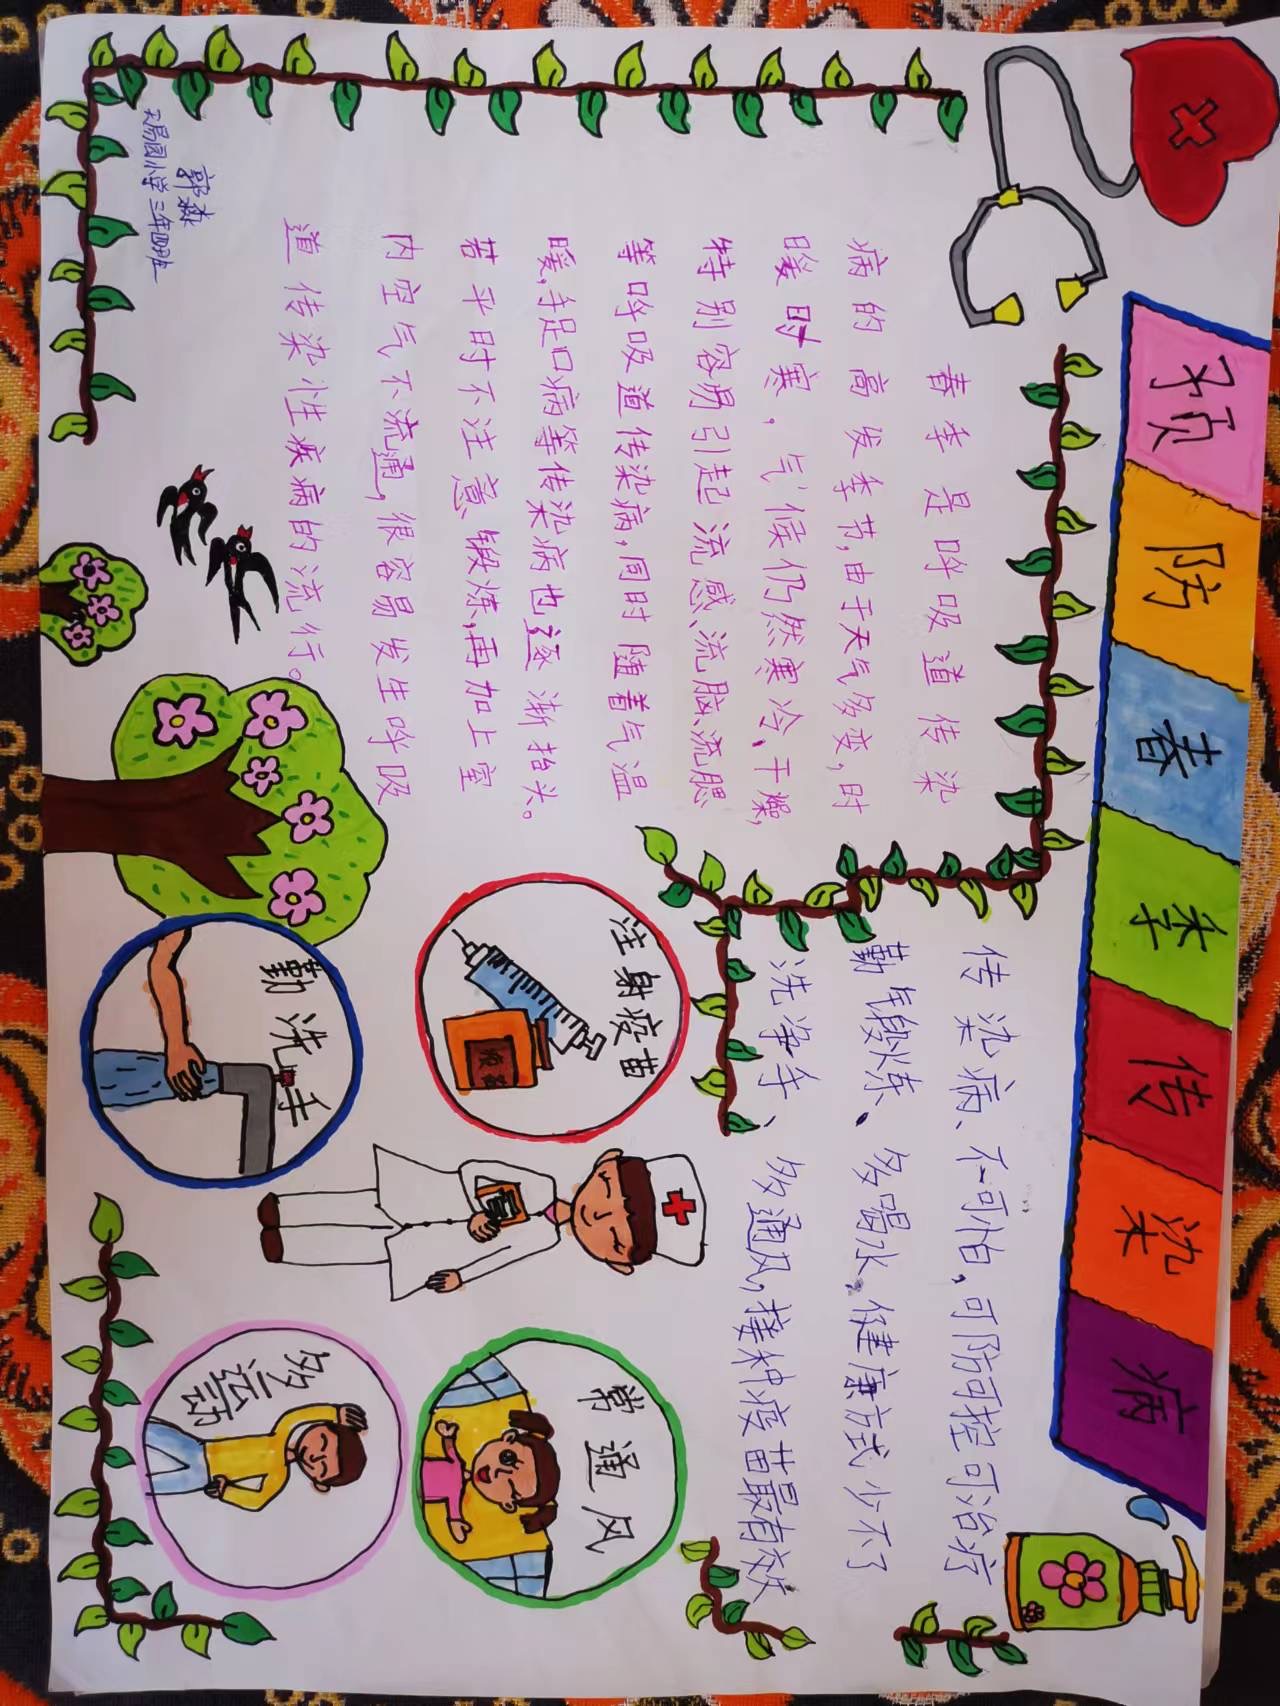 预防春季传染病
春季是呼吸道传染
病的高发季节,由于天气多变,时
暖时寒,气候仍然寒冷、干燥,
特别容易引起流感、流脑、流腮
等呼吸道传染病,同时随着气温
暖,手足口病等传染病也逐渐抬头。
若平时不注意锻炼,再加上室
内空气不流通,很容易发生呼吸
道传染性疾病的流行。
郭淼
小学三年四班
传染病、不可怕,可防可控可治疗
勤锻炼、多喝水,健康方式少不了
洗净手、多通风,接种疫苗最有效
注射疫苗
疫苗
勤洗手
常通风
多运动